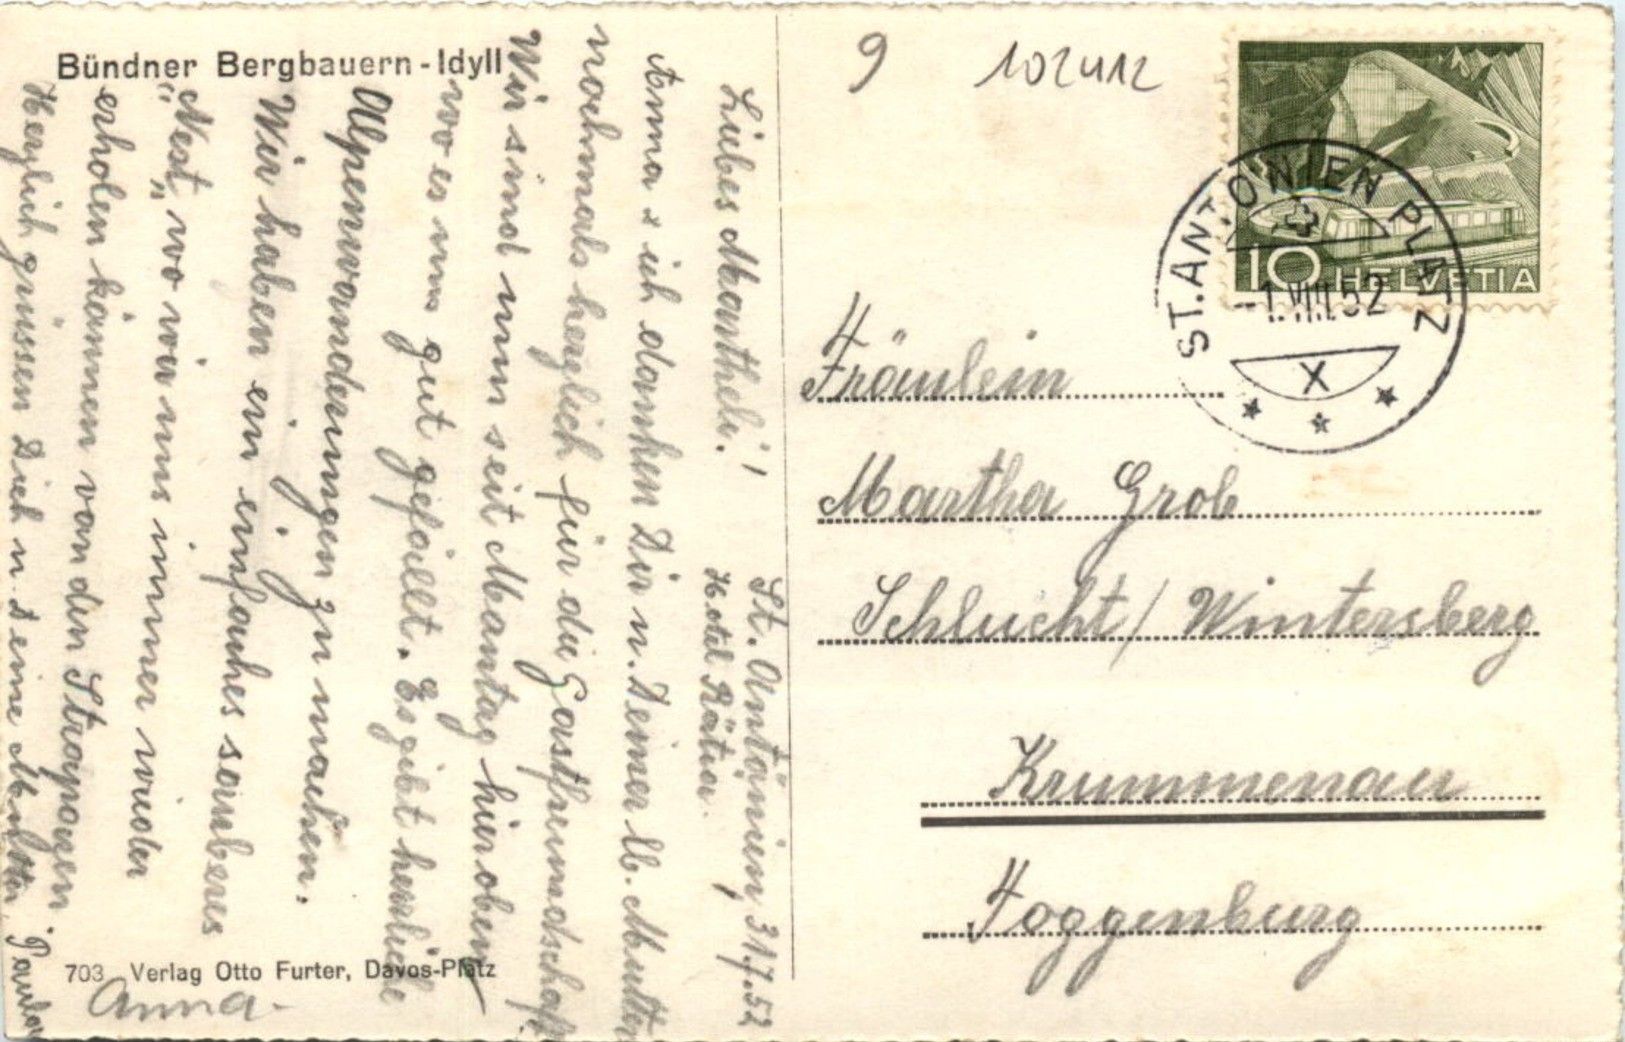 Bündner Bergbauern-Idyll
St. Antönien, 31.7.52
Hotel Rätia.
Liebes Martheli!
Anna & ich danken Dir u. Deiner lb. Mutter
nochmals herzlich für die Gastfreundschaft.
Wir sind nun seit Montag hier oben
wo es uns gut gefällt. Es gibt herrliche
Alpenwanderungen zu machen.
Wir haben ein einfaches sauberes
"Nest", wo wir uns immer wieder
erholen können von den Strapazen.
Herzlich grüssen Dich u. Deine Mutter,
Anna.
703 Verlag Otto Furter, Davos-Platz
9 102412
10 HELVETIA
ST. ANTÖNIEN PLATZ
-1.VIII.52
X
Fräulein
Martha Grob
Schlucht / Wintersberg
Krummenau
Toggenburg